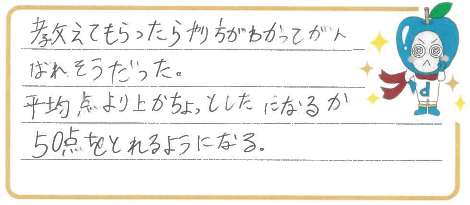 教えてもらったらやり方がわかってがん
ばれそうだった。
平均点より上かちょっとしたになるか
50点をとれるようになる。
d